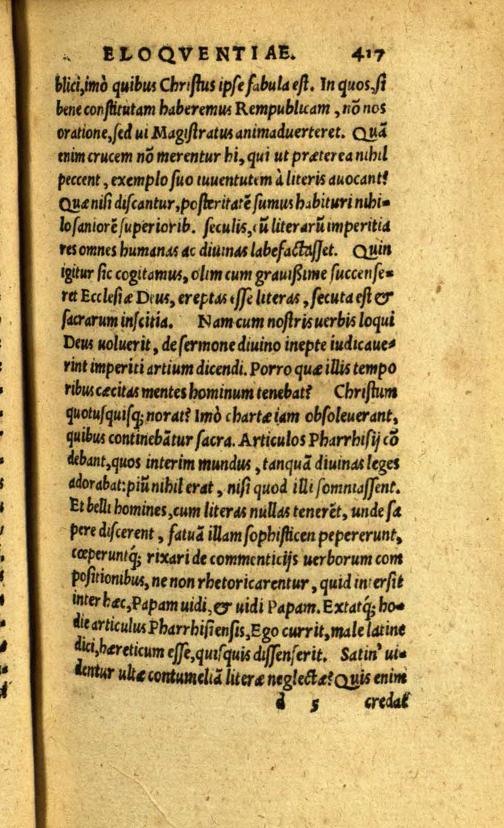 ELOQVENTIAE. 417
blici, imò quibus Christus ipse fabula est. In quos, si
bene constitutam haberemus Rempublicam, nõ nos
oratione, sed ui Magistratus animaduerteret. Quã
enim crucem nõ merentur hi, qui ut præterea nihil
peccent, exemplo suo iuuentutem à literis auocant?
Quæ nisi discantur, posteritatẽ sumus habituri nihi-
lo saniorẽ superiorib. seculis, cũ literarũ imperitia
res omnes humanas ac diuinas labefactasset. Quin
igitur sic cogitamus, olim cum grauißime succense-
ret Ecclesiæ Deus, ereptas esse literas, secuta est &
sacrarum inscitia. Nam cum nostris uerbis loqui
Deus uoluerit, de sermone diuino inepte iudicaue-
rint imperiti artium dicendi. Porro quæ illis tempo
ribus cæcitas mentes hominum tenebat? Christum
quotusquisq; norat? Imò chartæ iam obsoleuerant,
quibus continebãtur sacra. Articulos Pharrhisij cõ
debant, quos interim mundus, tanquã diuinas leges
adorabat: piũ nihil erat, nisi quod illi somniassent.
Et belli homines, cum literas nullas tenerẽt, unde sa
pere discerent, fatuã illam sophisticen pepererunt,
cœperuntq; rixari de commenticijs uerborum com
positionibus, ne non rhetoricarentur, quid intersit
inter hæc, Papam uidi, & uidi Papam. Extatq; ho-
die articulus Pharrhisiensis, Ego currit, male latine
dici, hæreticum esse, quisquis dissenserit. Satin' ui-
dentur ultæ contumeliã literæ neglectæ? Quis enim
d 5 credat